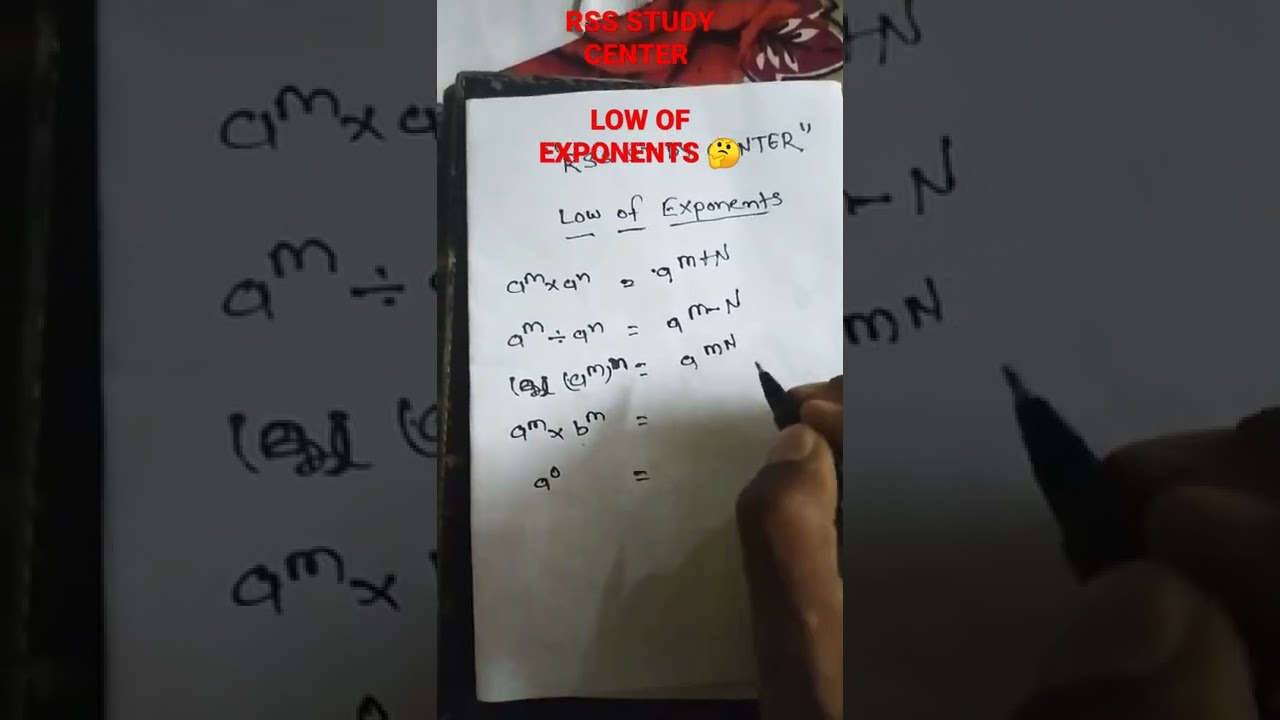 RSS STUDY
CENTER
LOW OF
EXPONENTS 🤔
Low of Exponents
a^m × a^n = a^{m+N}
a^m ÷ a^n = a^{m-N}
(a^m)^n = a^{mN}
a^m × b^m =
a^0 =